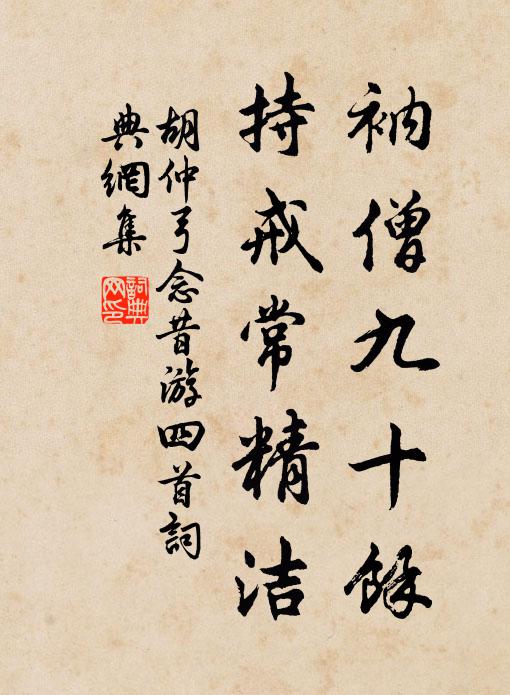 衲僧九十餘
持戒常精洁
胡仲弓念昔游四首詞
典網集
詞典网印